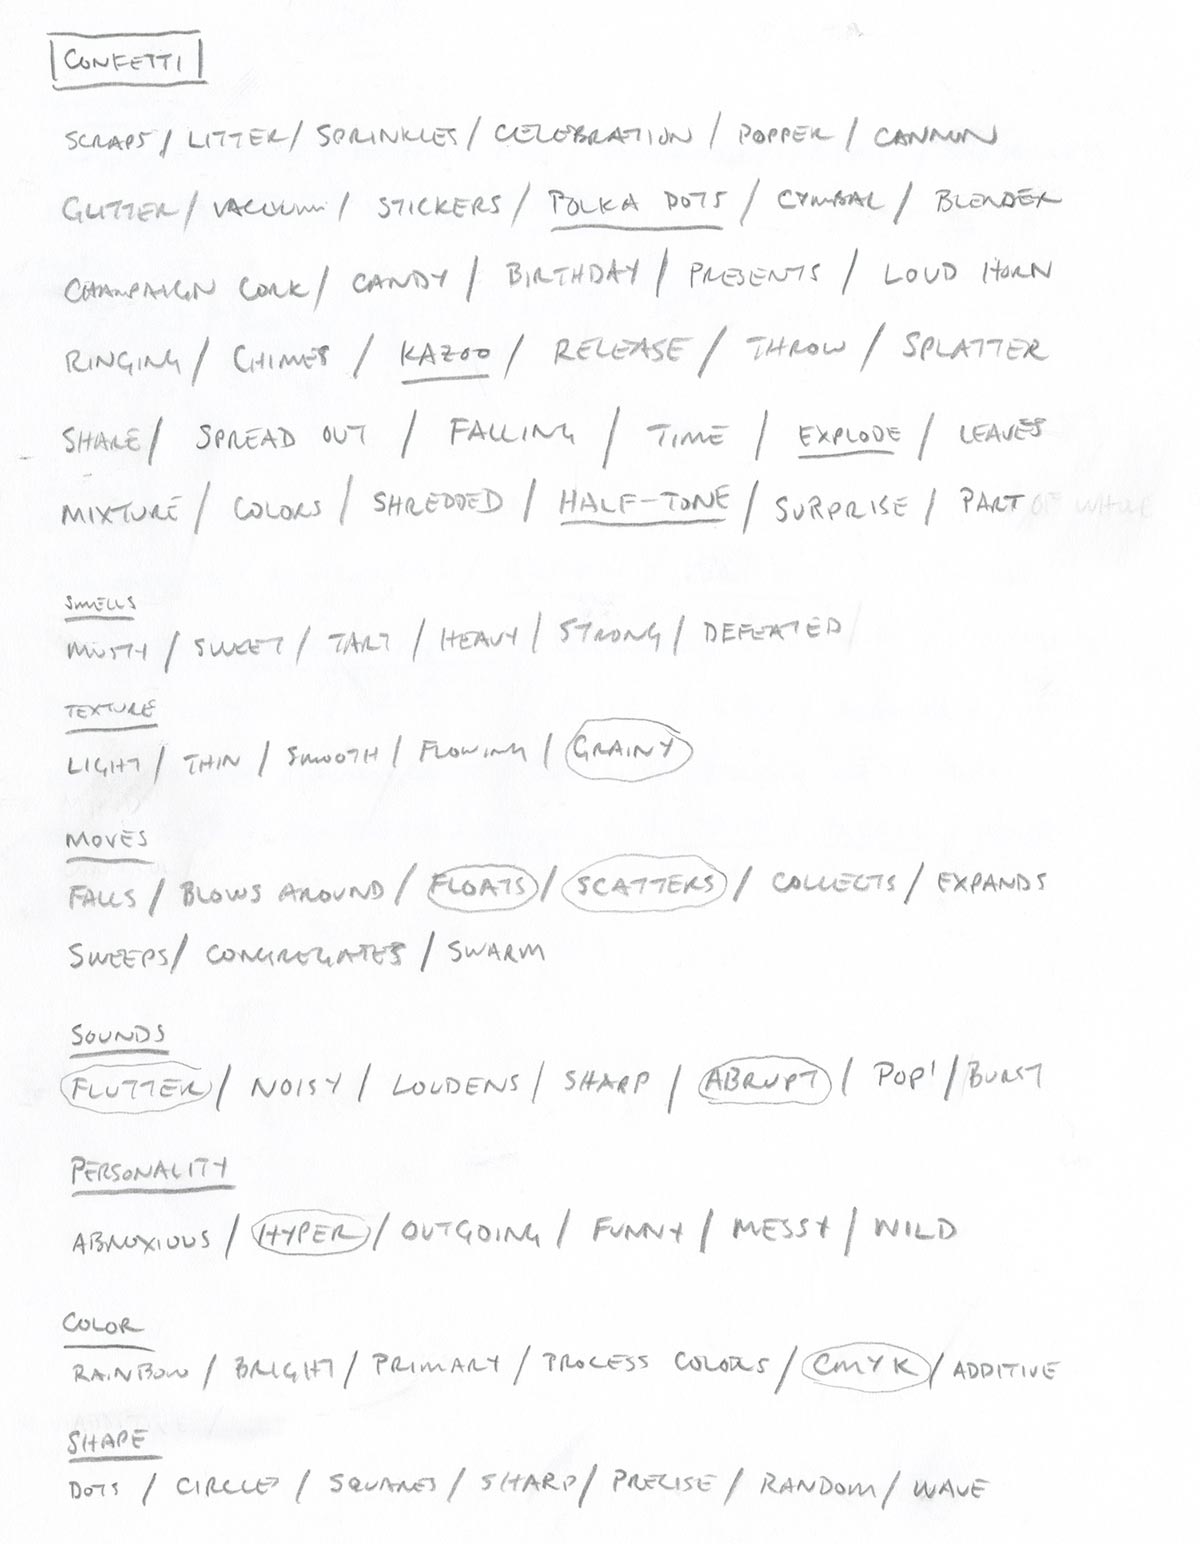 CONFETTI
SCRAPS / LITTER / SPRINKLES / CELEBRATION / POPPER / CANNON
GLITTER / VACUUM / STICKERS / POLKA DOTS / CYMBAL / BLENDER
CHAMPAIGN CORK / CANDY / BIRTHDAY / PRESENTS / LOUD HORN
RINGING / CHIMES / KAZOO / RELEASE / THROW / SPLATTER
SHARE / SPREAD OUT / FALLING / TIME / EXPLODE / LEAVES
MIXTURE / COLORS / SHREDDED / HALF-TONE / SURPRISE / PART OF WHOLE
SMELLS
MUSTY / SWEET / TART / HEAVY / STRONG / DEFEATED
TEXTURE
LIGHT / THIN / SMOOTH / FLOWING / GRAINY
MOVES
FALLS / BLOWS AROUND / FLOATS / SCATTERS / COLLECTS / EXPANDS
SWEEPS / CONGREGATES / SWARM
SOUNDS
FLUTTER / NOISY / LOUDENS / SHARP / ABRUPT / POP! / BURST
PERSONALITY
ABNOXIOUS / HYPER / OUTGOING / FUNNY / MESSY / WILD
COLOR
RAINBOW / BRIGHT / PRIMARY / PROCESS COLORS / CMYK / ADDITIVE
SHAPE
DOTS / CIRCLES / SQUARES / SHARP / PRECISE / RANDOM / WAVE